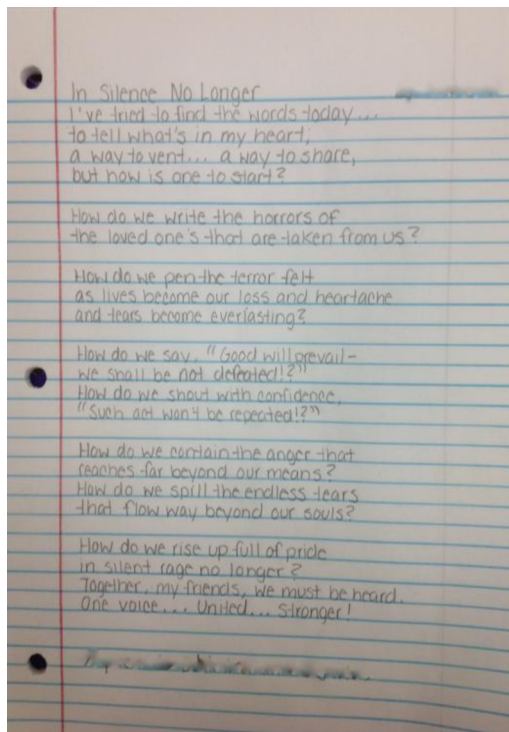 In Silence No Longer
I've tried to find the words today...
to tell what's in my heart,
a way to vent... a way to share,
but how is one to start?
How do we write the horrors of
the loved one's that are taken from us?
How do we pen the terror felt
as lives become our loss and heartache
and tears become everlasting?
How do we say, "Good will prevail-
we shall be not defeated!?"
How do we shout with confidence,
"Such act won't be repeated!?"
How do we contain the anger that
reaches far beyond our means?
How do we spill the endless tears
that flow way beyond our souls?
How do we rise up full of pride
in silent rage no longer?
Together, my friends, we must be heard.
One voice... United... Stronger!